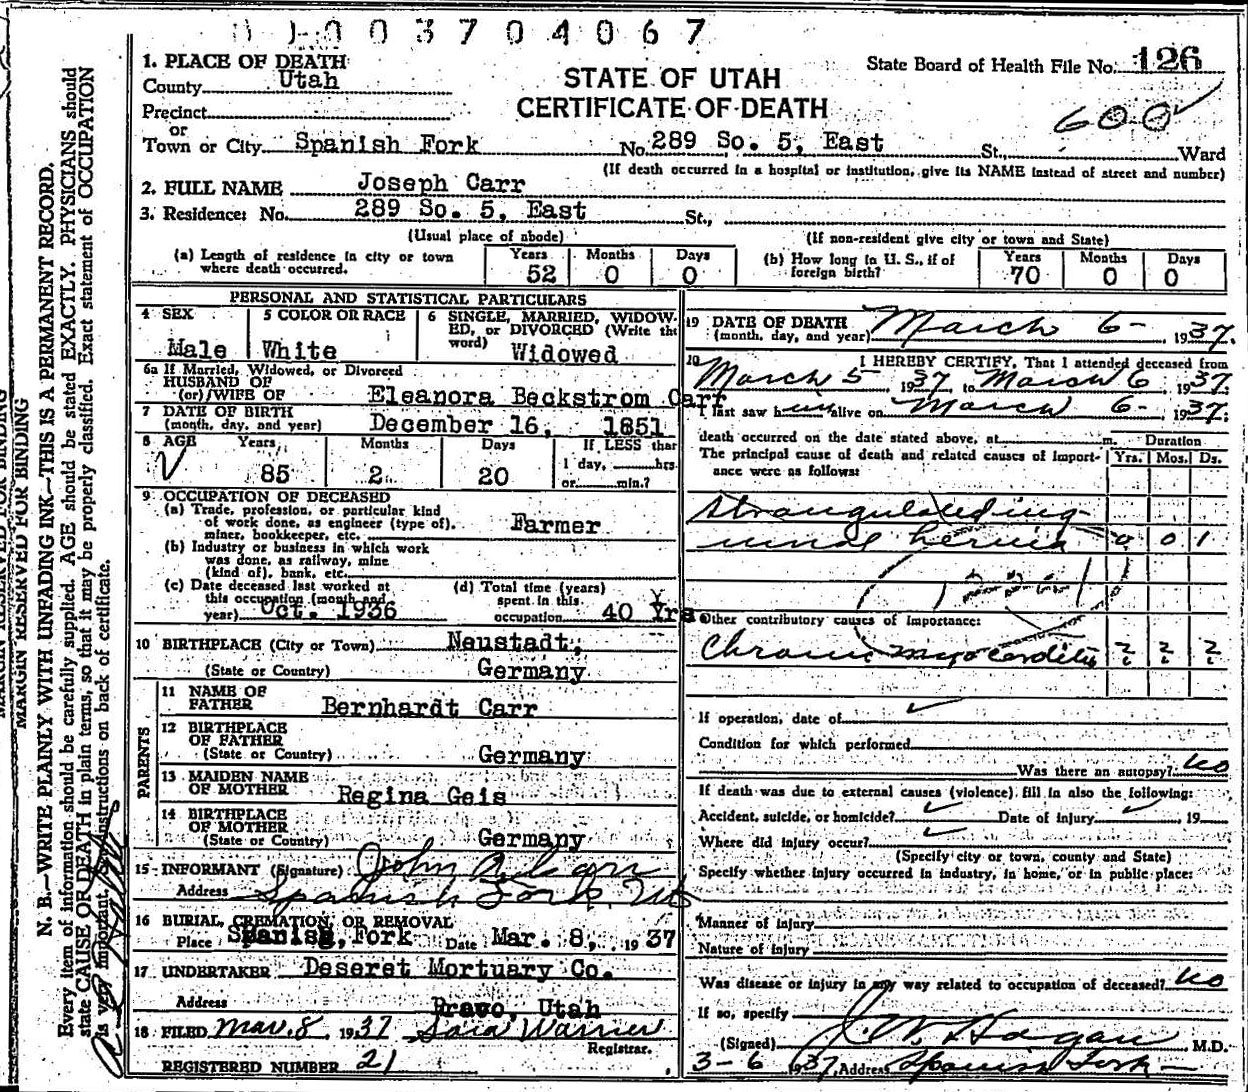 003704067
1. PLACE OF DEATH
County Utah
STATE OF UTAH
CERTIFICATE OF DEATH
State Board of Health File No. 126
Precinct
600
or
Town or City Spanish Fork No. 289 So. 5, East St., Ward
(If death occurred in a hospital or institution, give its NAME instead of street and number)
2. FULL NAME Joseph Carr
3. Residence: No. 289 So. 5, East St.,
(Usual place of abode) (If non-resident give city or town and State)
(a) Length of residence in city or town where death occurred. Years 52 Months 0 Days 0
(b) How long in U. S., if of foreign birth? Years 70 Months 0 Days 0
PERSONAL AND STATISTICAL PARTICULARS
4 SEX Male
5 COLOR OR RACE White
6 SINGLE, MARRIED, WIDOWED, or DIVORCED (Write the word) Widowed
6a If Married, Widowed, or Divorced
HUSBAND OF
(or) WIFE OF Eleanora Beckstrom Carr
7 DATE OF BIRTH
(month, day, and year) December 16, 1851
8 AGE Years 85 Months 2 Days 20
If LESS than
1 day, hrs
or min.?
9 OCCUPATION OF DECEASED
(a) Trade, profession, or particular kind
of work done, as engineer (type of),
miner, bookkeeper, etc. Farmer
(b) Industry or business in which work
was done, as railway, mine
(kind of), bank, etc.
(c) Date deceased last worked at
this occupation (month and
year) Oct. 1936
(d) Total time (years)
spent in this
occupation 40 Yrs
10 BIRTHPLACE (City or Town) Neustadt,
(State or Country) Germany
PARENTS
11 NAME OF
FATHER Bernhardt Carr
12 BIRTHPLACE
OF FATHER
(State or Country) Germany
13 MAIDEN NAME
OF MOTHER Regina Geis
14 BIRTHPLACE
OF MOTHER
(State or Country) Germany
15 INFORMANT (Signature) John
Address Spanish Fork, Ut
16 BURIAL, CREMATION, OR REMOVAL
Place Spanish, Fork Date Mar. 8, 1937
17 UNDERTAKER Deseret Mortuary Co.
Address Pravo, Utah
18 FILED Mar. 8, 1937 Sara Warner
Registrar.
REGISTERED NUMBER 21
19 DATE OF DEATH
(month, day, and year) March 6- 1937.
I HEREBY CERTIFY, That I attended deceased from
March 5 1937 to March 6 1937.
I last saw him alive on March 6- 1937.
death occurred on the date stated above, at m.
Duration
The principal cause of death and related causes of importance were as follows: Yrs. Mos. Ds.
Strangulated ing-
uinal hernia 0 0 1
Other contributory causes of importance:
Chronic myocarditis ? ? ?
If operation, date of
Condition for which performed
Was there an autopsy? no
If death was due to external causes (violence) fill in also the following:
Accident, suicide, or homicide? Date of injury , 19
Where did injury occur?
(Specify city or town, county and State)
Specify whether injury occurred in industry, in home, or in public place:
Manner of injury
Nature of injury
Was disease or injury in any way related to occupation of deceased? no
If so, specify
(Signed) J. W. Hagan M.D.
3-6 1937, Address Spanish Fork
MARGIN RESERVED FOR BINDING
MARGIN RESERVED FOR BINDING
N. B.—WRITE PLAINLY WITH UNFADING INK—THIS IS A PERMANENT RECORD.
Every item of information should be carefully supplied. AGE should be stated EXACTLY. PHYSICIANS should
state CAUSE OR DEATH in plain terms, so that it may be properly classified. Exact statement of OCCUPATION
is very important. See instructions on back of certificate.